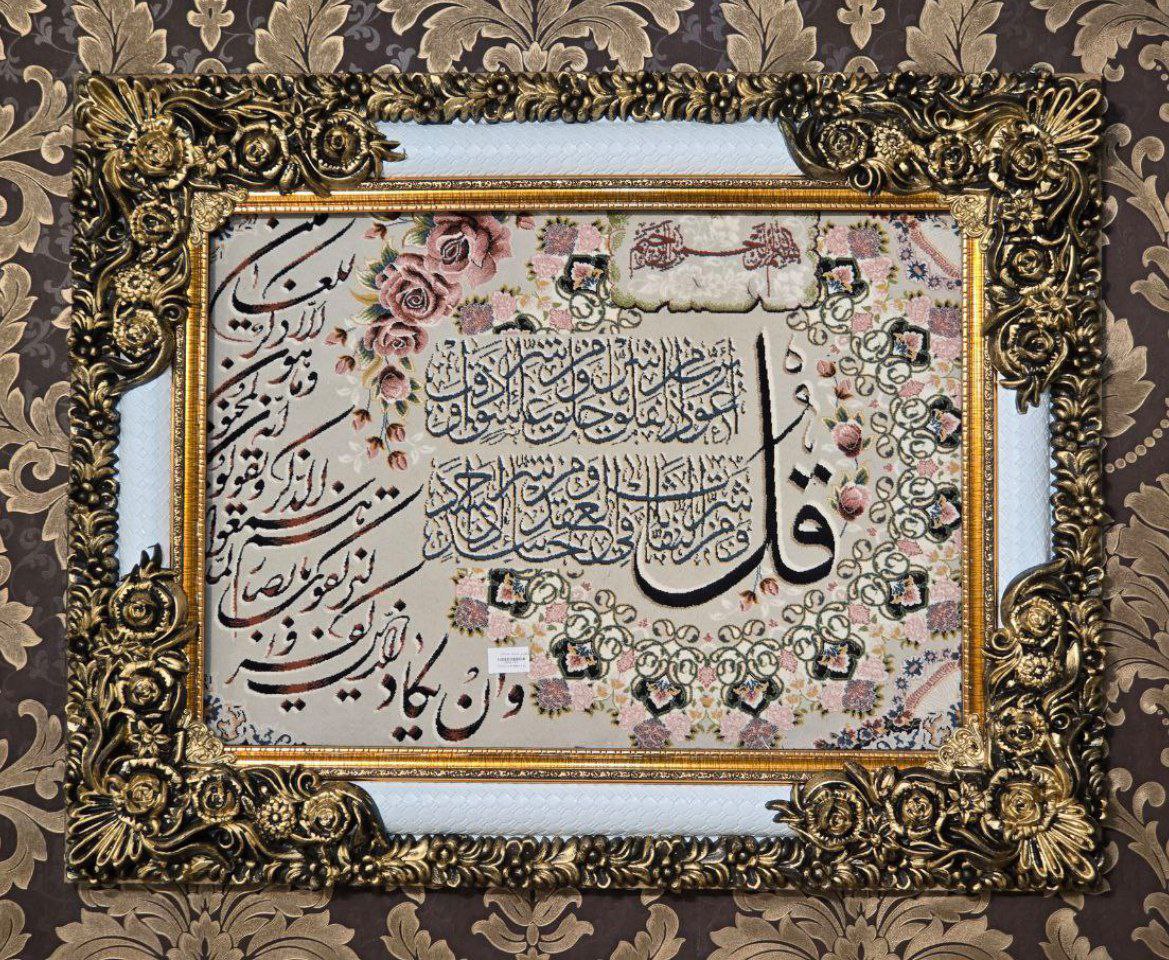 بسم الله الرحمن الرحيم
قل
أعوذ برب الفلق من شر ما خلق ومن شر غاسق إذا وقب
ومن شر النفاثات في العقد ومن شر حاسد إذا حسد
وان يكاد
الذين كفروا
ليزلقونك بابصارهم
لما سمعوا
الذكر ويقولون
انه لمجنون
وما هو
الا ذكر
للعالمين